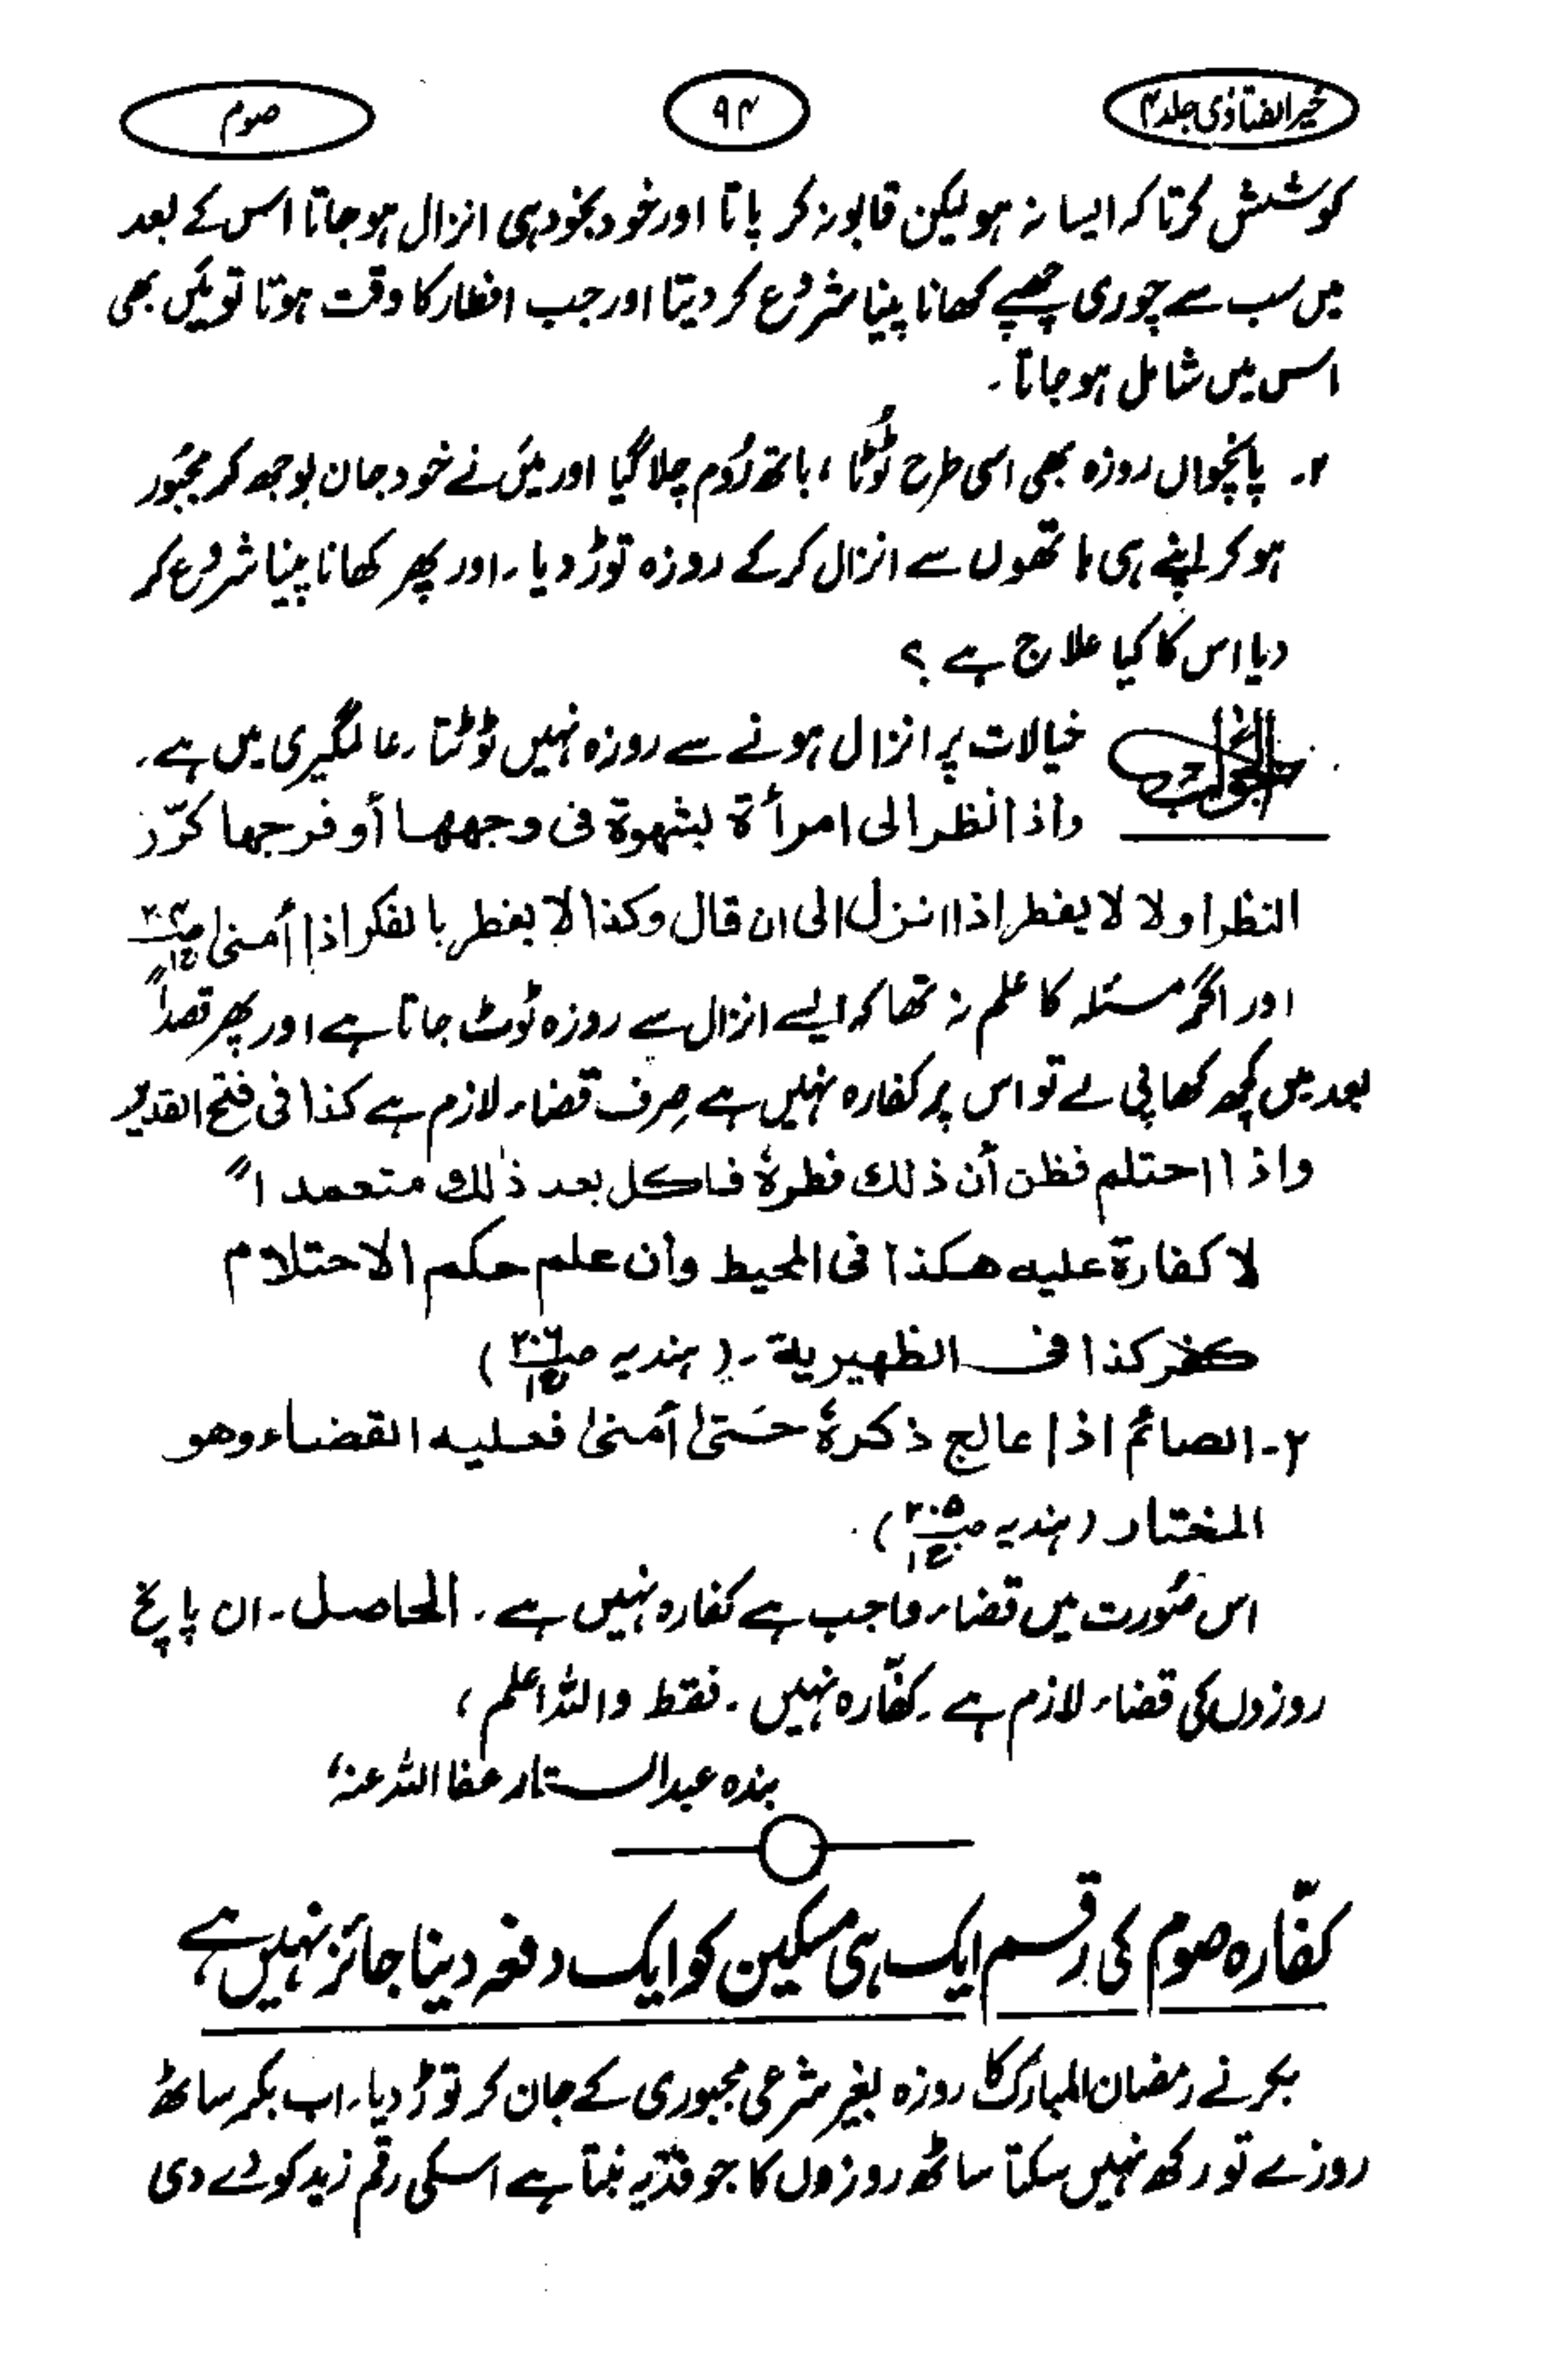 خیر الفتاوٰی جلد ۴
۹۴
صوم
کوشش کرتا کہ ایسا نہ ہو لیکن قابو نہ کر پاتا اور خود بخود ہی انزال ہو جاتا اس کے بعد
میں سب سے چوری چھپے کھانا پینا شروع کر دیتا اور جب افطار کا وقت ہوتا تو میں بھی
اس میں شامل ہو جاتا۔
۲۔ پانچواں روزہ بھی اسی طرح ٹوٹا، باتھ رُوم چلا گیا اور میں نے خود جان بوجھ کر مجبُور
ہو کر اپنے ہی ہاتھوں سے انزال کر کے روزہ توڑ دیا۔ اور پھر کھانا پینا شروع کر
دیا اس کا کیا علاج ہے ؟
الجواب
خیالات پر انزال ہونے سے روزہ نہیں ٹوٹتا۔ عالمگیری میں ہے۔
واذا نظر الی امرأة بشهوة فی وجهها أو فرجها کرّر
النظر اولا لا یفطر اذا انزل الی ان قال وکذا لا یفطر بالفکر اذا أمنیٰ ص۲۰۴ ج۱
اور اگر مسئلہ کا علم نہ تھا کہ ایسے انزال سے روزہ ٹوٹ جاتا ہے اور پھر قصداً
بعد میں کچھ کھا پی لے تو اس پر کفارہ نہیں ہے صِرف قضاء لازم ہے کذا فی فتح القدیر
واذا احتلم فظن أن ذلك فطرهٗ فاکل بعد ذٰلك متعمدا ً
لا کفارة علیه هکذا فی المحیط وان علم حکم الاحتلام
کفر کذا فی الظهیریة۔ (ہندیہ ص۲۰۶ ج۱)
۲۔ الصائم اذا عالج ذکرهٗ حَتیٰ أمنیٰ فعلیه القضاء وهو
المختار (ہندیہ ص۲۰۵ ج۱)۔
اس صُورت میں قضاء واجب ہے کفارہ نہیں ہے۔ الحاصل۔ ان پانچ
روزوں کی قضاء لازم ہے۔ کفّارہ نہیں۔ فقط واللہ اعلم،
بندہ عبدالستار عفا اللہ عنہٗ
کفّارہ صوم کی رقم ایک ہی مسکین کو ایک دفعہ دینا جائز نہیں ہے
بکر نے رمضان المبارک کا روزہ بغیر شرعی مجبوری کے جان کر توڑ دیا۔ اب بکر ساٹھ
روزے تو رکھ نہیں سکتا ساٹھ روزوں کا جو فدیہ بنتا ہے اسکی رقم زید کو دے دی